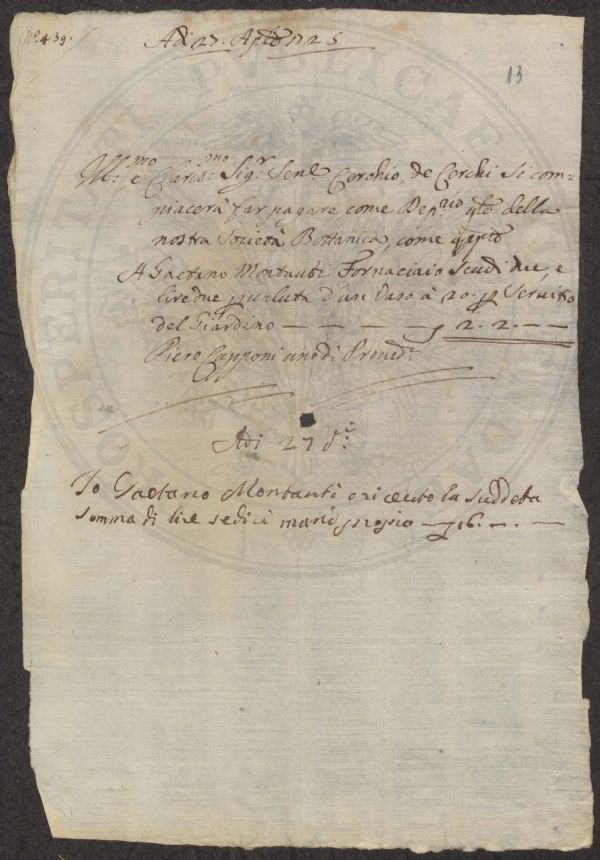 N.º 439.
Adi 27. Ap.le 1725
13
Ill:mo e Claris:mo Sig:r Sen:e Cerchio de Cerchi Si com=
piacerà far pagare come Dep:rio della
nostra Società Bottanica, come
A Gaetano Montauti Fornaciaio Scudi due, e
lire due p valuta d'un Vaso à 20. p Seruito
del Giardino — — — — 2. 2. — —
Piero Capponi uno di Proued:ri
Adi 27 d:o
Io Gaetano Montauti o riceuto la suddeta
somma di lire sedici mano propio — 16. — . —
PUBLICAE